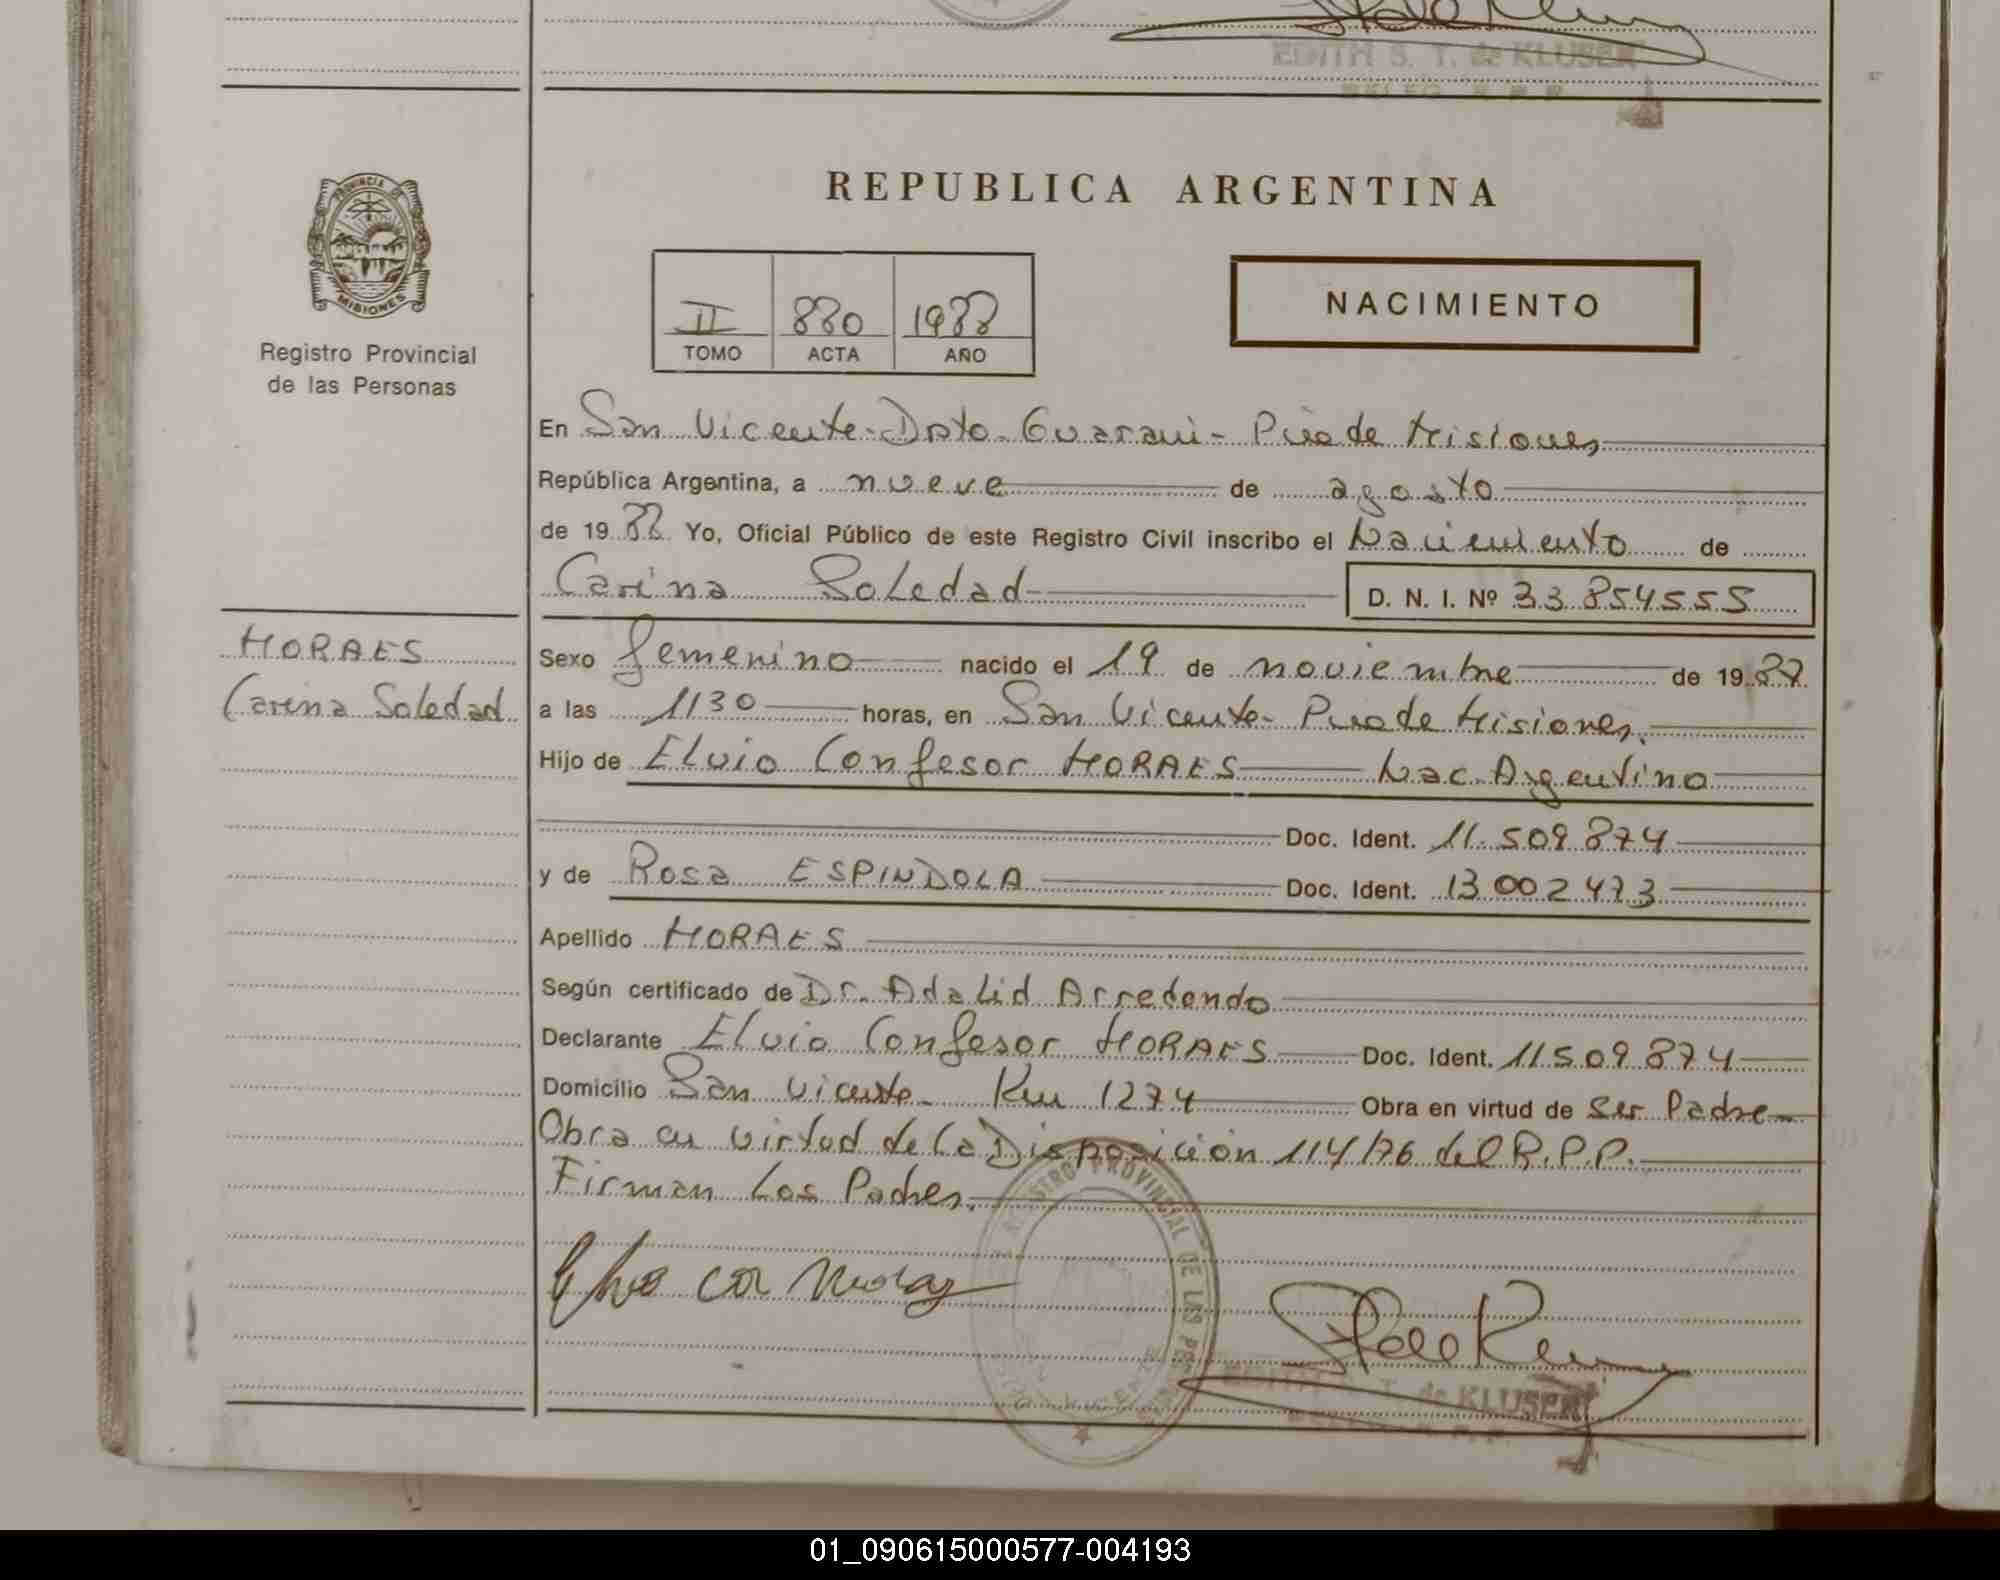 EDITH S. T. de KLUSER
PROVINCIA DE
MISIONES
Registro Provincial
de las Personas
REPUBLICA ARGENTINA
II 880 1988
TOMO ACTA AÑO
NACIMIENTO
En San Vicente-Dpto. Guarani- Pcia de Misiones
República Argentina, a nueve de agosto
de 1988 Yo, Oficial Público de este Registro Civil inscribo el Nacimiento de
Carina Soledad D. N. I. Nº 33 854555
MORAES
Carina Soledad
Sexo femenino nacido el 19 de noviembre de 1987
a las 1130 horas, en San Vicente- Pcia de Misiones.
Hijo de Elvio Confesor MORAES Nac. Argentino
Doc. Ident. 11.509.874
y de Rosa ESPINDOLA Doc. Ident. 13.002.473
Apellido MORAES
Según certificado de Dr. Adalid Arredondo
Declarante Elvio Confesor MORAES Doc. Ident. 11.509.874
Domicilio San Vicente- Km 1274 Obra en virtud de ser Padre
Obra en virtud de la Disposición 114/76 del R.P.P.
Firman Los Padres.
REGISTRO PROVINCIAL DE LAS
EDITH S. T. de KLUSER
01_090615000577-004193